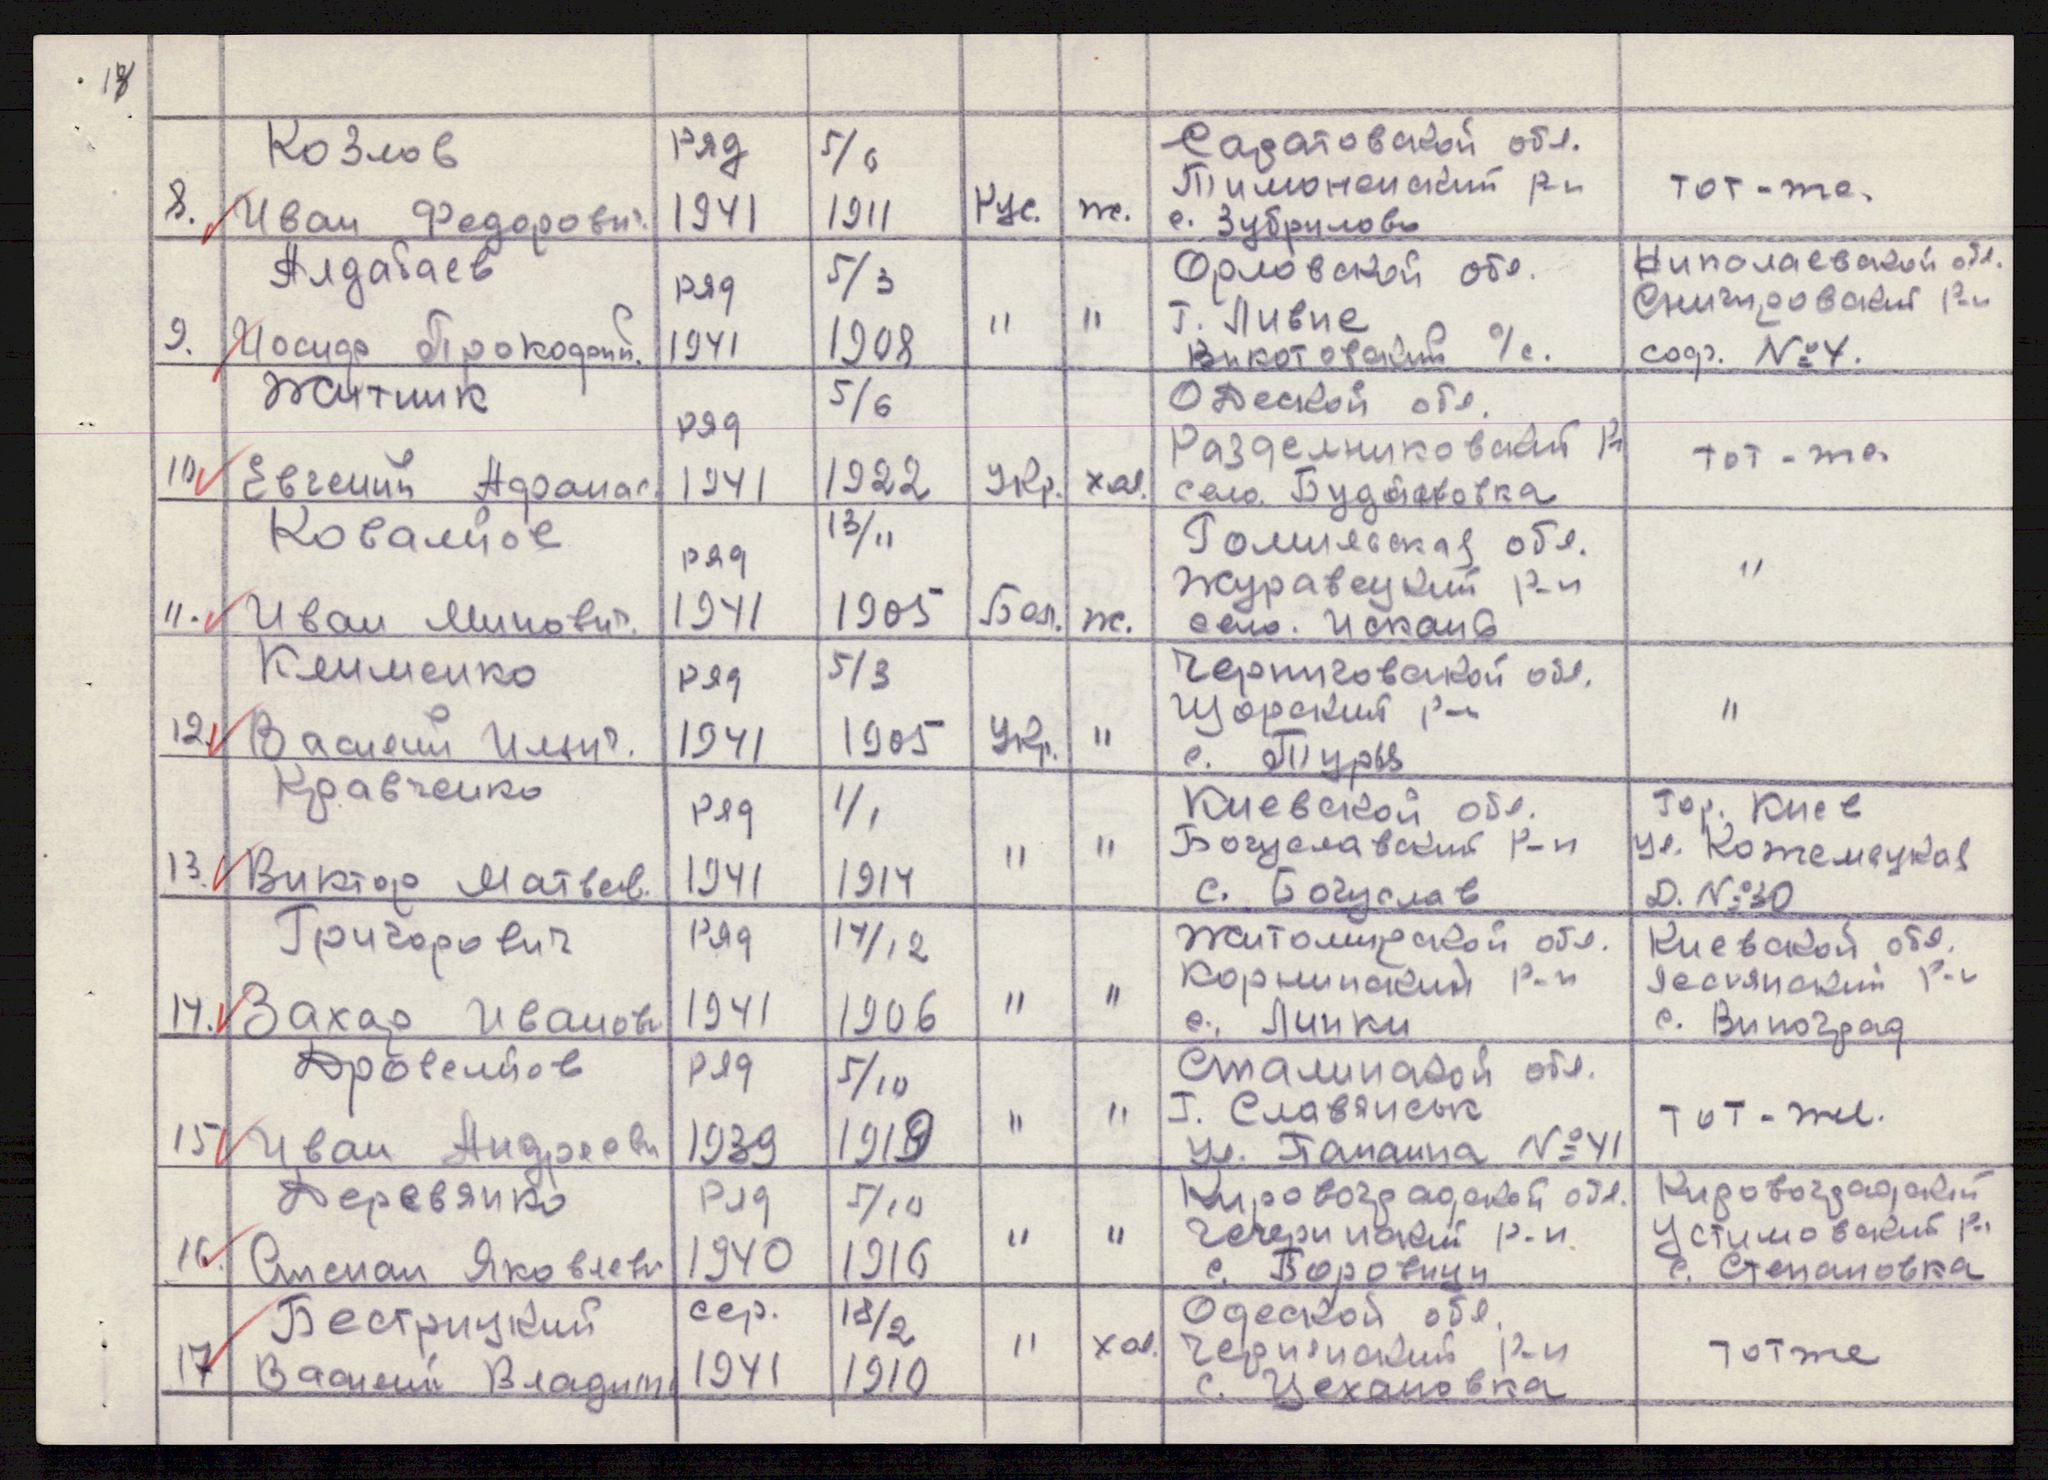 18
Козлов ряд 5/6 Саратовской обл.
Тимоненский р-н тот-же.
8. Иван Федорович. 1941 1911 Рус. ж. с. Зубрилово
Алдабаев ряд 5/3 Орловской обл. Николаевской обл.
" " г. Ливне Снигировский р-н
9. Иосиф Прокофий. 1941 1908 Викотовский с/с. совх. №4.
Житник ряд 5/6 Одеской обл.
Разделниковский р-н тот-же
10. Евгений Афанас. 1941 1922 Укр. хол. село.
Ковалйов ряд 13/11 Гомилвская обл.
Журавецкий р-н "
11. Иван Минович. 1941 1905 Бел. ж. село.
Клименко ряд 5/3 Черниговской обл.
Щорский р-н "
12. Василий Ильич. 1941 1905 Укр. " с. Туры
Кравченко ряд 1/1 Киевской обл. Гор. Киев
" " Богуславский р-н ул. Кожемяцкая
13. Виктор Матвеев. 1941 1914 с. Богуслав Д. №30
Григорович ряд 14/12 Житомирской обл. Киевской обл.
" " Корнинский р-н р-н
14. Захар Иванови 1941 1906 с. Липки с. Виноград
Дровелйов ряд 5/10 Сталинской обл.
" " г. Славянськ тот-же.
15. Иван Андрееви 1939 1919 ул. Папанина №41
Деревянко ряд 5/10 Кировоградской обл. Кировоградский
" " Чегеринский р-н. Устимовский р-н
16. Степан Яковлеви 1940 1916 с. Боровици с. Степановка
Бестрицкий сер. 18/2 Одеской обл.
" хол. Чернянский р-н тотже
17 Василий Владими 1941 1910 с. Цехановка